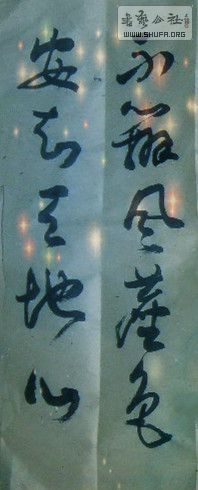 書藝公社
WWW.SHUFA.ORG
不辨風塵色
安知天地心